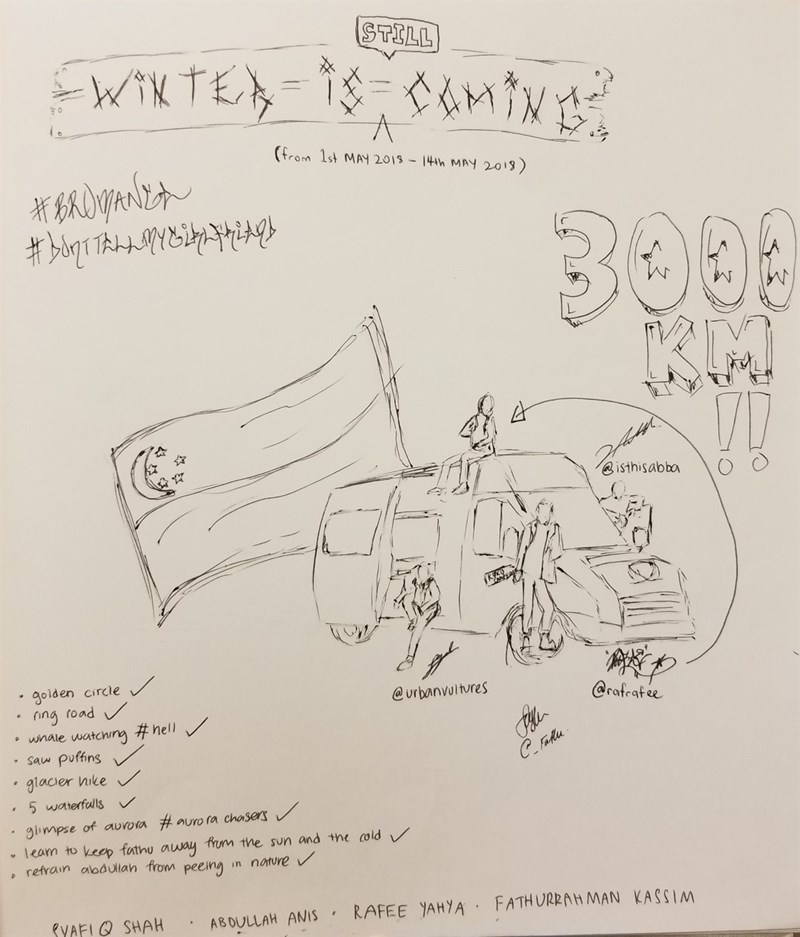 STILL
WINTER IS COMING
(from 1st MAY 2018 - 14th MAY 2018)
#BROMANCE
#DONTTELLMYGIRLFRIEND
3000
KM
!!
@isthisabba
@urbanvultures
@rafrafee
@_Fathu
• golden circle ✓
• ring road ✓
• whale watching #hell ✓
• saw puffins ✓
• glacier hike ✓
• 5 waterfalls ✓
• glimpse of aurora #aurora chasers ✓
• learn to keep fathu away from the sun and the cold ✓
• refrain abdullah from peeing in nature ✓
SHAH • ABDULLAH ANIS • RAFEE YAHYA • FATHURRAHMAN KASSIM